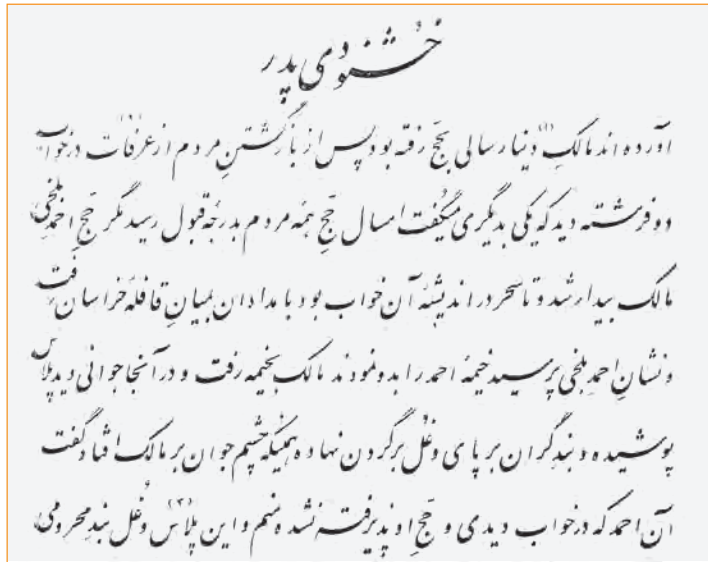 خشنودی پدر
آورده اند مالکِ (۱) دینار سالی بحجّ رفته بود پس از بازگشتنِ مردم از عرفات (۲) درخواب
دو فرشته دید که یکی بدیگری میگفت امسال حجّ همه مردم بدرجۀ قبول رسید مگر حجّ احمدِ بلخی،
مالک بیدار شد و تا سحر در اندیشۀ آن خواب بود بامدادان بمیانِ قافلۀ خراسان رفت
و نشانِ احمدِ بلخی پرسید خیمۀ احمد را بدو نمودند مالک بخیمه رفت و در آنجا جوانی دید پلاس
پوشیده و بندِ گران بر پای و غُل بر گردن نهاده همینکه چشمِ جوان بر مالک افتاد گفت
آن احمد که درخواب دیدی و حجّ او پذیرفته نشده منم و این پلاس (۳) و غُل بندِ محرومی